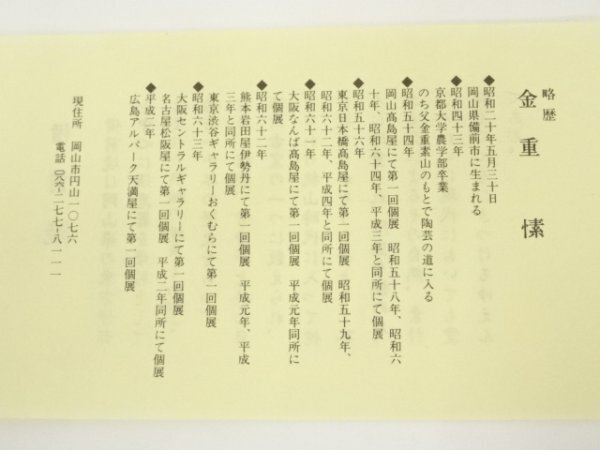 略歴
金重愫
◆昭和二十年五月三十日
岡山県備前市に生まれる
◆昭和四十三年
京都大学農学部卒業
のち父金重素山のもとで陶芸の道に入る
◆昭和五十四年
岡山高島屋にて第一回個展　昭和五十八年、昭和六
十年、昭和六十四年、平成三年と同所にて個展
◆昭和五十六年
東京日本橋高島屋にて第一回個展　昭和五十九年、
昭和六十二年、平成四年と同所にて個展
◆昭和六十一年
大阪なんば高島屋にて第一回個展　平成元年同所に
て個展
◆昭和六十二年
熊本岩田屋伊勢丹にて第一回個展　平成元年、平成
三年と同所にて個展
東京渋谷ギャラリーおくむらにて第一回個展
◆昭和六十三年
大阪セントラルギャラリーにて第一回個展
名古屋松阪屋にて第一回個展　平成二年同所にて個展
◆平成二年
広島アルパーク天満屋にて第一回個展
現住所　岡山市円山一〇七六
電話（〇八六）二七七-八一一一